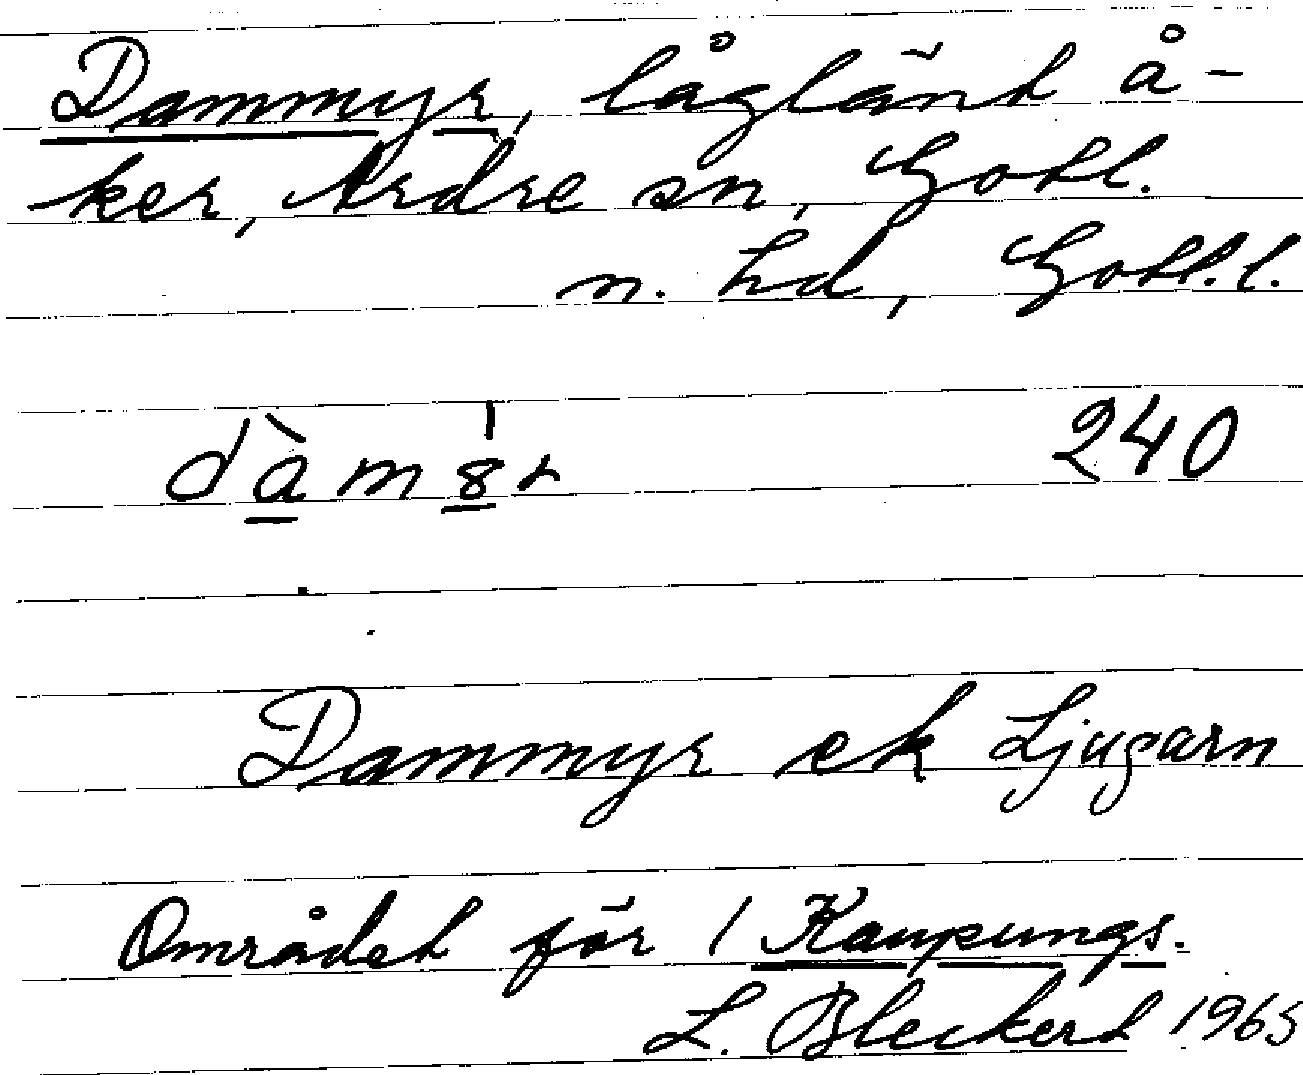 Dammyr, låglänt å-
ker, Ardre sn, Gotl.
n. hd, Gotl. l.
240
Dammyr ek Ljugarn
Området för 1 Kaupungs.
L. Bleckert 1965